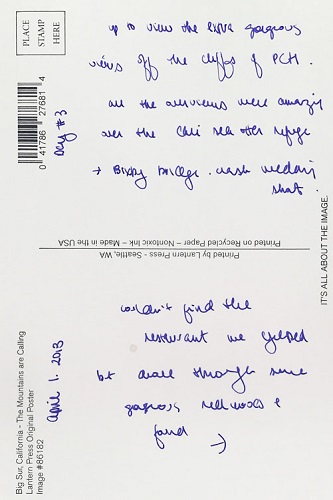 PLACE
STAMP
HERE
0 41786 27681 4
Day #3
up to view the extra gorgeous
views off the cliffs of PCH.
all the overviews were amazing
over the Cali sea otter refuge
→ Bixby Bridge. wedding
shot.
IT'S ALL ABOUT THE IMAGE.
Printed on Recycled Paper - Nontoxic Ink - Made in the USA
Printed by Lantern Press - Seattle, WA
couldn't find the
restaurant we yelped
but drove through some
gorgeous redwoods &
found →
April 1. 2013
Big Sur, California - The Mountains are Calling
Lantern Press Original Poster
Image #86182